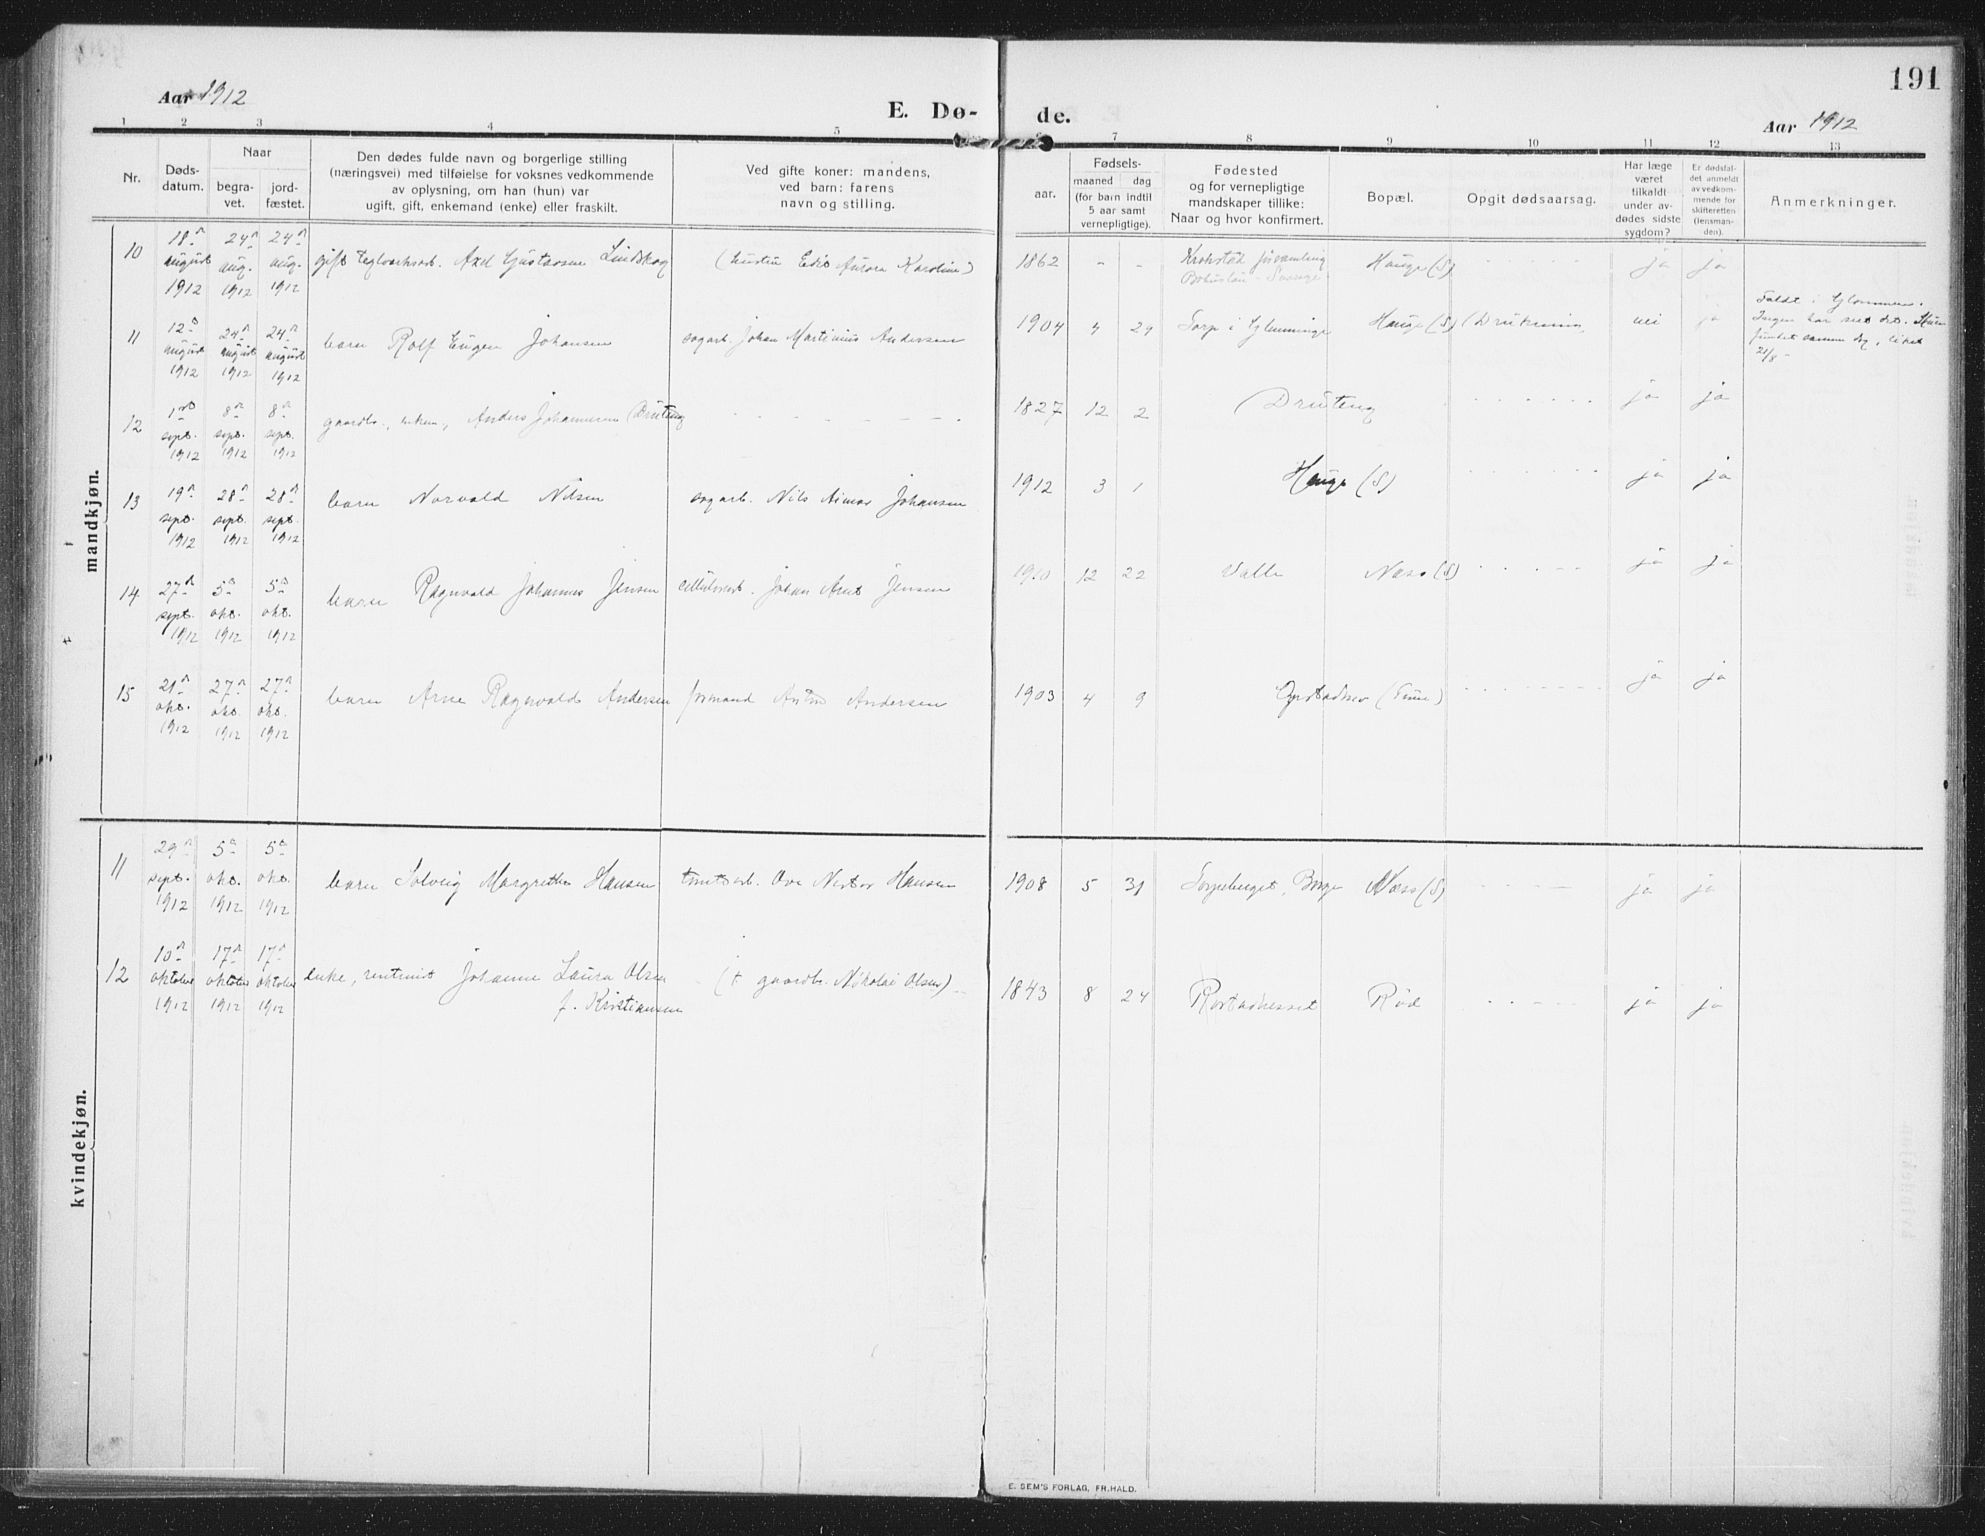 191
Aar 1912
E. Dø-
de.
Aar 1912
1 2 3 4 5 6 7 8 9 10 11 12 13
Nr.
Døds-
datum.
Naar
begra-
vet.
jord-
fæstet.
Den dødes fulde navn og borgerlige stilling
(næringsvei) med tilføielse for voksnes vedkommende
av oplysning, om han (hun) var
ugift, gift, enkemand (enke) eller fraskilt.
Ved gifte koner: mandens,
ved barn: farens
navn og stilling.
Fødsels-
aar.
maaned dag
(for barn indtil
5 aar samt
vernepligtige).
Fødested
og for vernepligtige
mandskaper tillike:
Naar og hvor konfirmert.
Bopæl.
Opgit dødsaarsag.
Har læge
været
tilkaldt
under av-
dødes sidste
sygdom?
Er dødsfal-
det anmeldt
av vedkom-
mende for
skifteretten
(lensman-
den).
Anmerkninger.
mandkjøn.
10 18de august 1912 24de aug. 1912 24de aug. 1912 gift teglverksarb. Axel Gustavsen Lindskog (hustru Edis Aurora Karoline) 1862 - - Krokstad forsamling Bohuslän - Sverige Hauge (S) ja ja
11 12te august 1912 24de august 1912 24de august 1912 barn Rolf Eugen Johansen sagarb. Johan Martinius Andersen 1904 4 24 Torp i Glemminge Hauge (S) (Drukning nei ja
Faldt i Glommen.
Ingen har set det. Huen
fundet samme dag, liket
21/8 -
12 1ste sept. 1912 8de sept. 1912 8de sept. 1912 gaardbr., enkem., Anders Johannesen (Drüteng 1827 12 2 (Drüteng ja ja
13 19de sept. 1912 28de sept. 1912 28de sept. 1912 barn Norvald Nilsen sagarb. Nils Aimar Johansen 1912 3 1 Hauge (S) ja ja
14 27de sept. 1912 5te okt. 1912 5te okt. 1912 barn Ragnvald Johannes Jensen cellulosearb. Johan Arnt Jensen 1910 12 22 Valle Næss (S) ja ja
15 21de okt. 1912 27de okt. 1912 27de okt. 1912 barn Arne Ragnvald Andersen formand Anton Andersen 1903 4 9 (Tune) ja ja
kvindekjøn.
11 29de sept. 1912 5te okt. 1912 5te okt. 1912 barn Solveig Margrethe Hansen tomtearb. Ove Nestor Hansen 1908 5 31 Torpeberget, Borge Næss (S) ja ja
12 10de oktober 1912 17de oktober 1912 17de oktober 1912 enke, rentenist Johanne Laura Olsen
f. Kristiansen (+ gaardbr. Nikolai Olsen) 1843 8 24 Rostadnesset Rød ja ja
E. SEM'S FORLAG, FR.HALD.